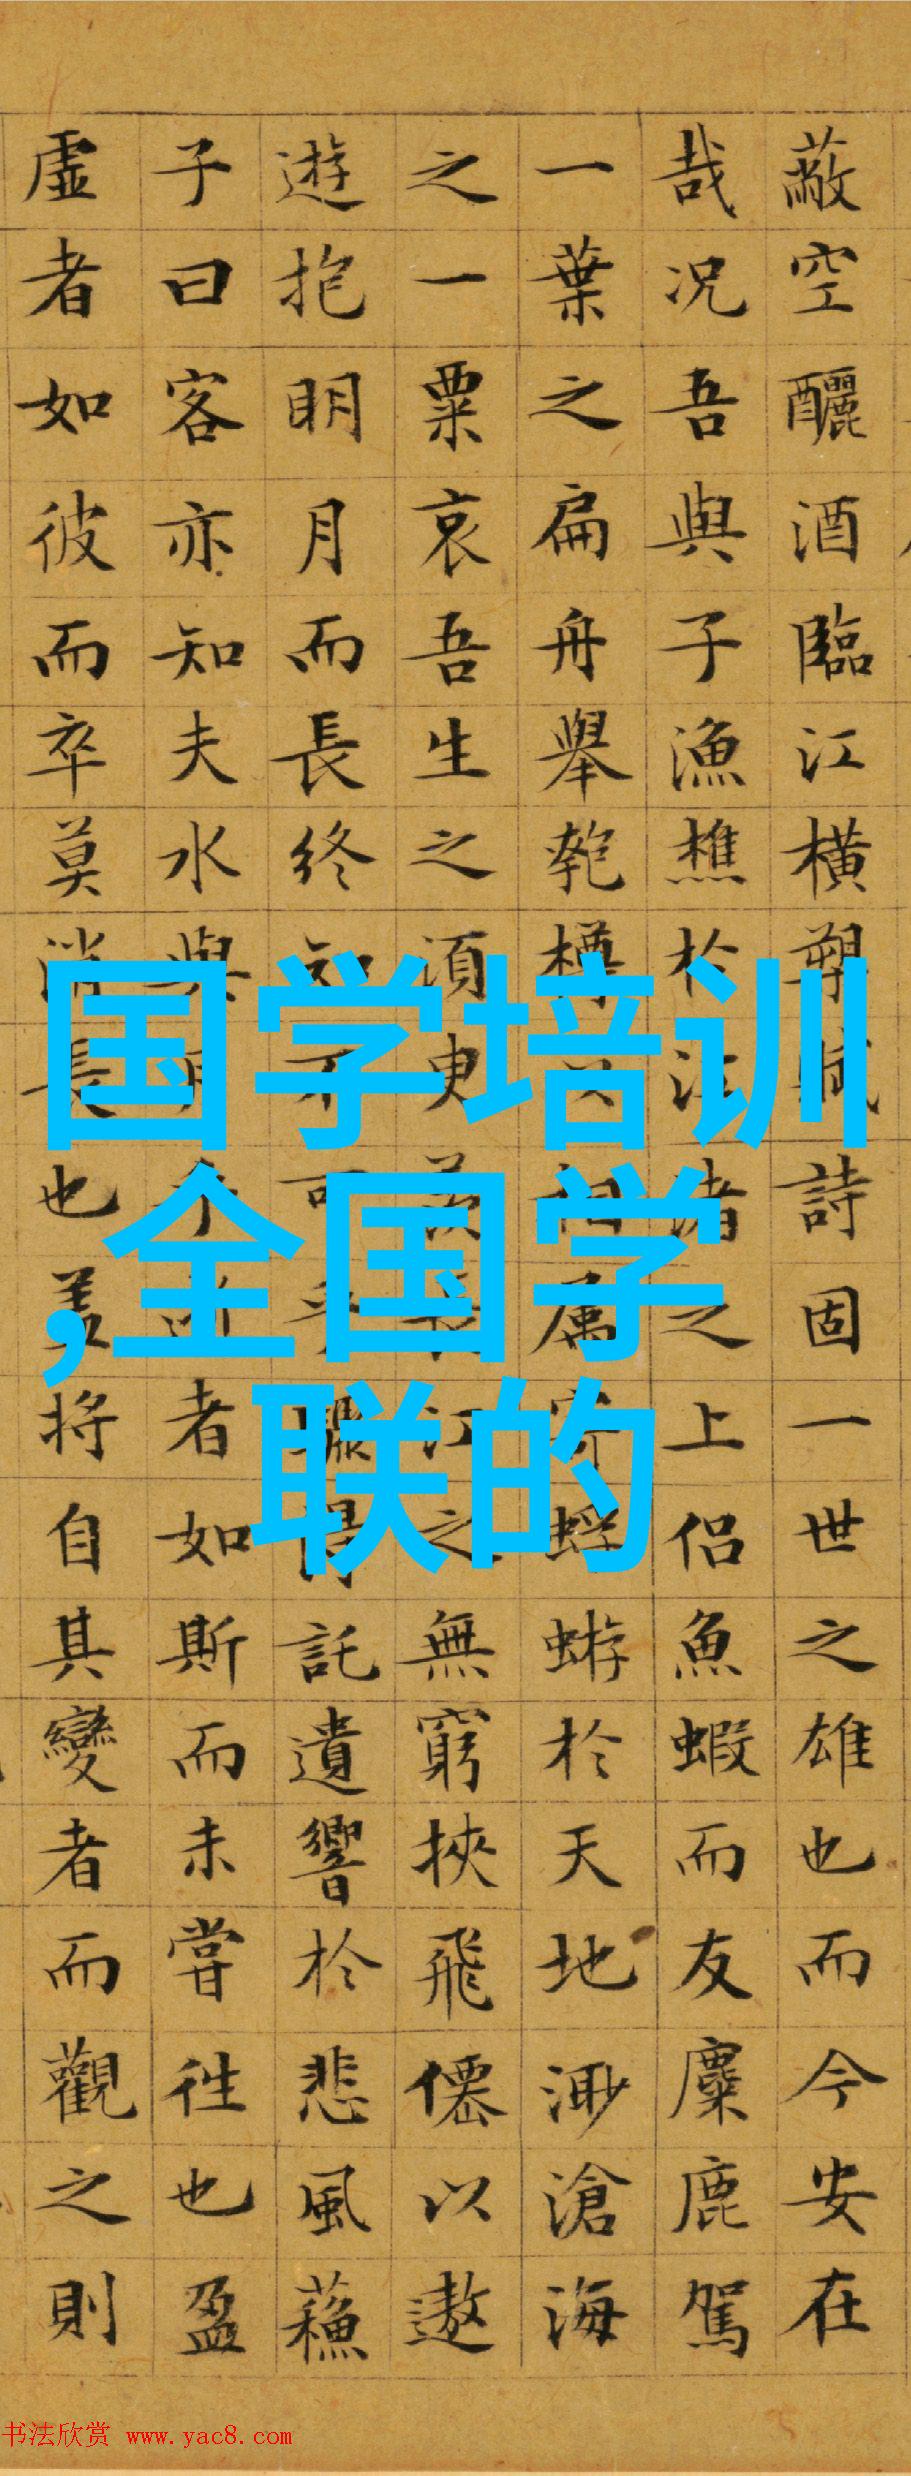 蔽空釃酒臨江橫槊賦詩固一世之雄也而今安在
哉况吾與子漁樵於江渚之上侣魚蝦而友麋鹿駕
一葉之扁舟舉匏樽以相属寄蜉蝣於天地渺滄海
之一粟哀吾生之須臾羨長江之無窮挾飛僊以遨
遊抱明月而長終知不可乎驟得託遺響於悲風蘓
子曰客亦知夫水與月乎逝者如斯而未嘗往也盈
虛者如彼而卒莫消長也盖将自其變者而觀之則
国学培训
,全国学
联的
书法欣赏 www.yac8.com